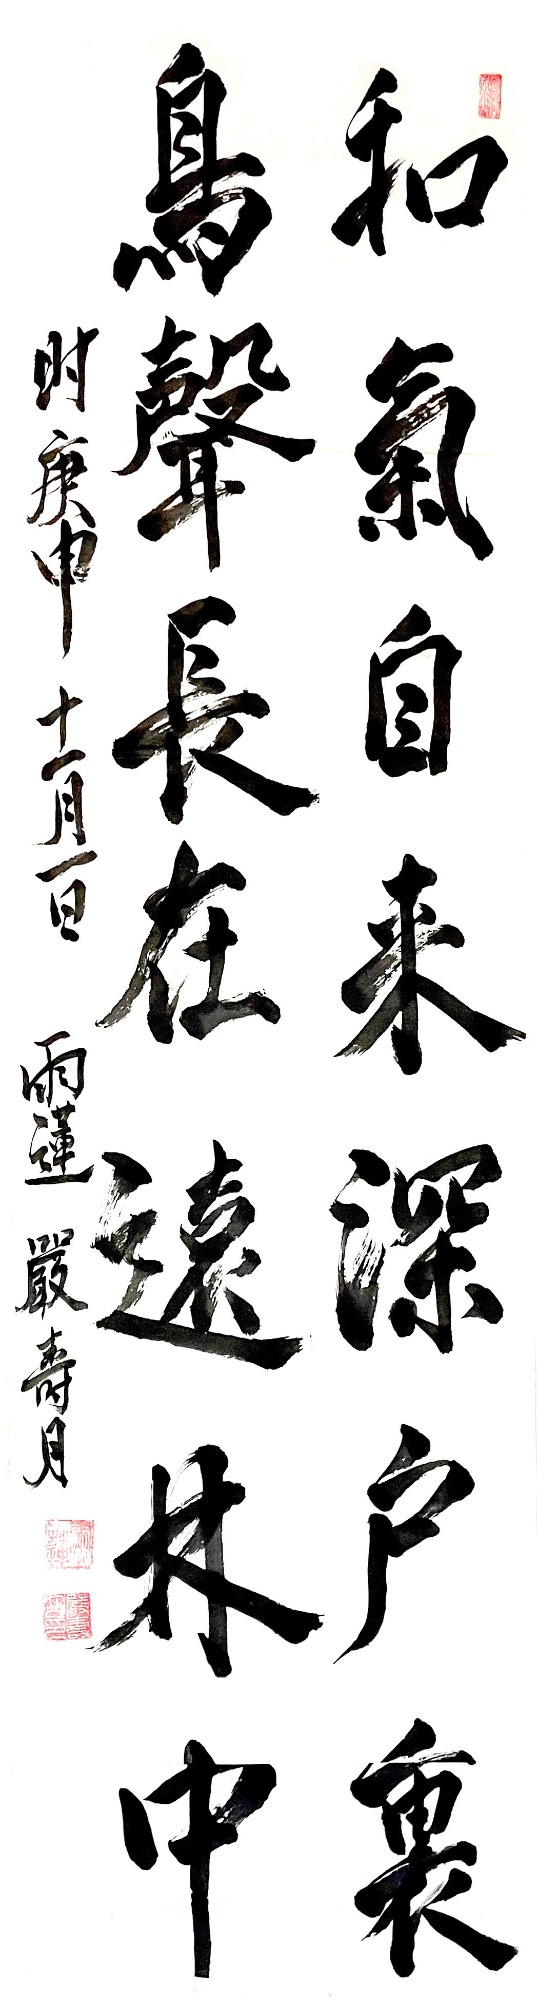 和氣自来深户裏
鳥聲長在遠林中
時庚申十一月一日 雨蓮 嚴壽月